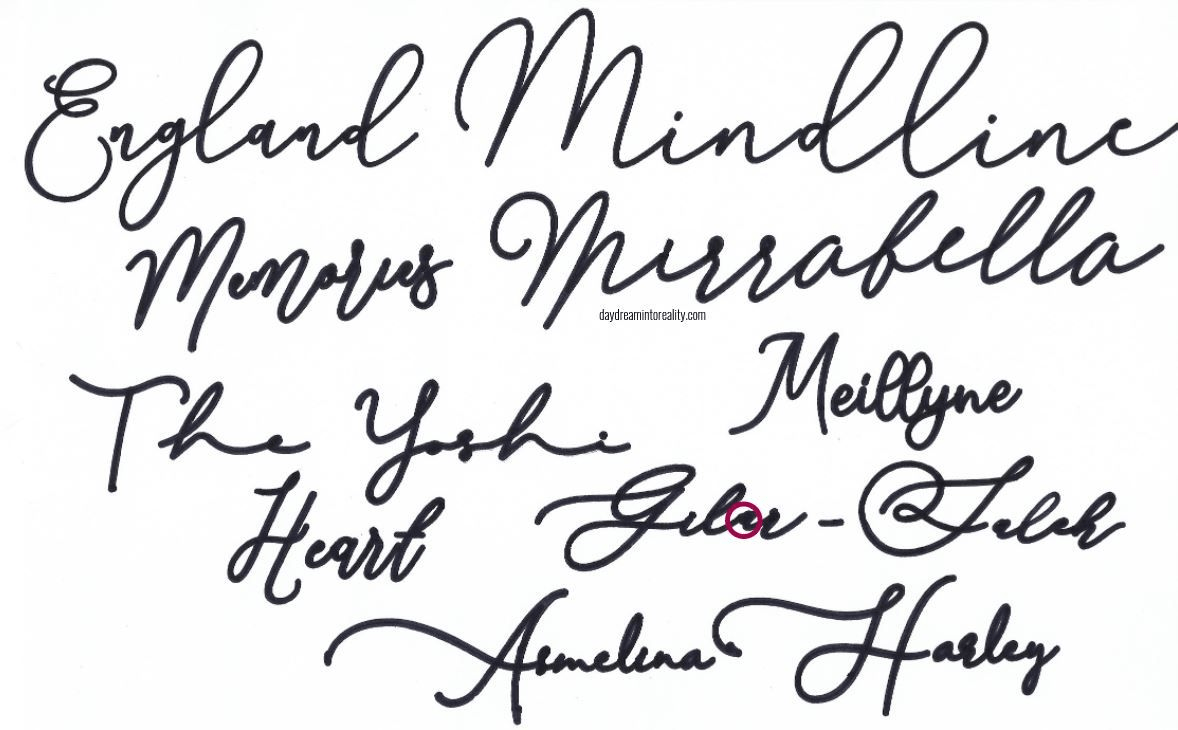 England Mindline
Memories Mirrabella
daydreamintoreality.com
Meillyne
The Yoshi
Heart Gilar - Saleh
Asmelina Harley